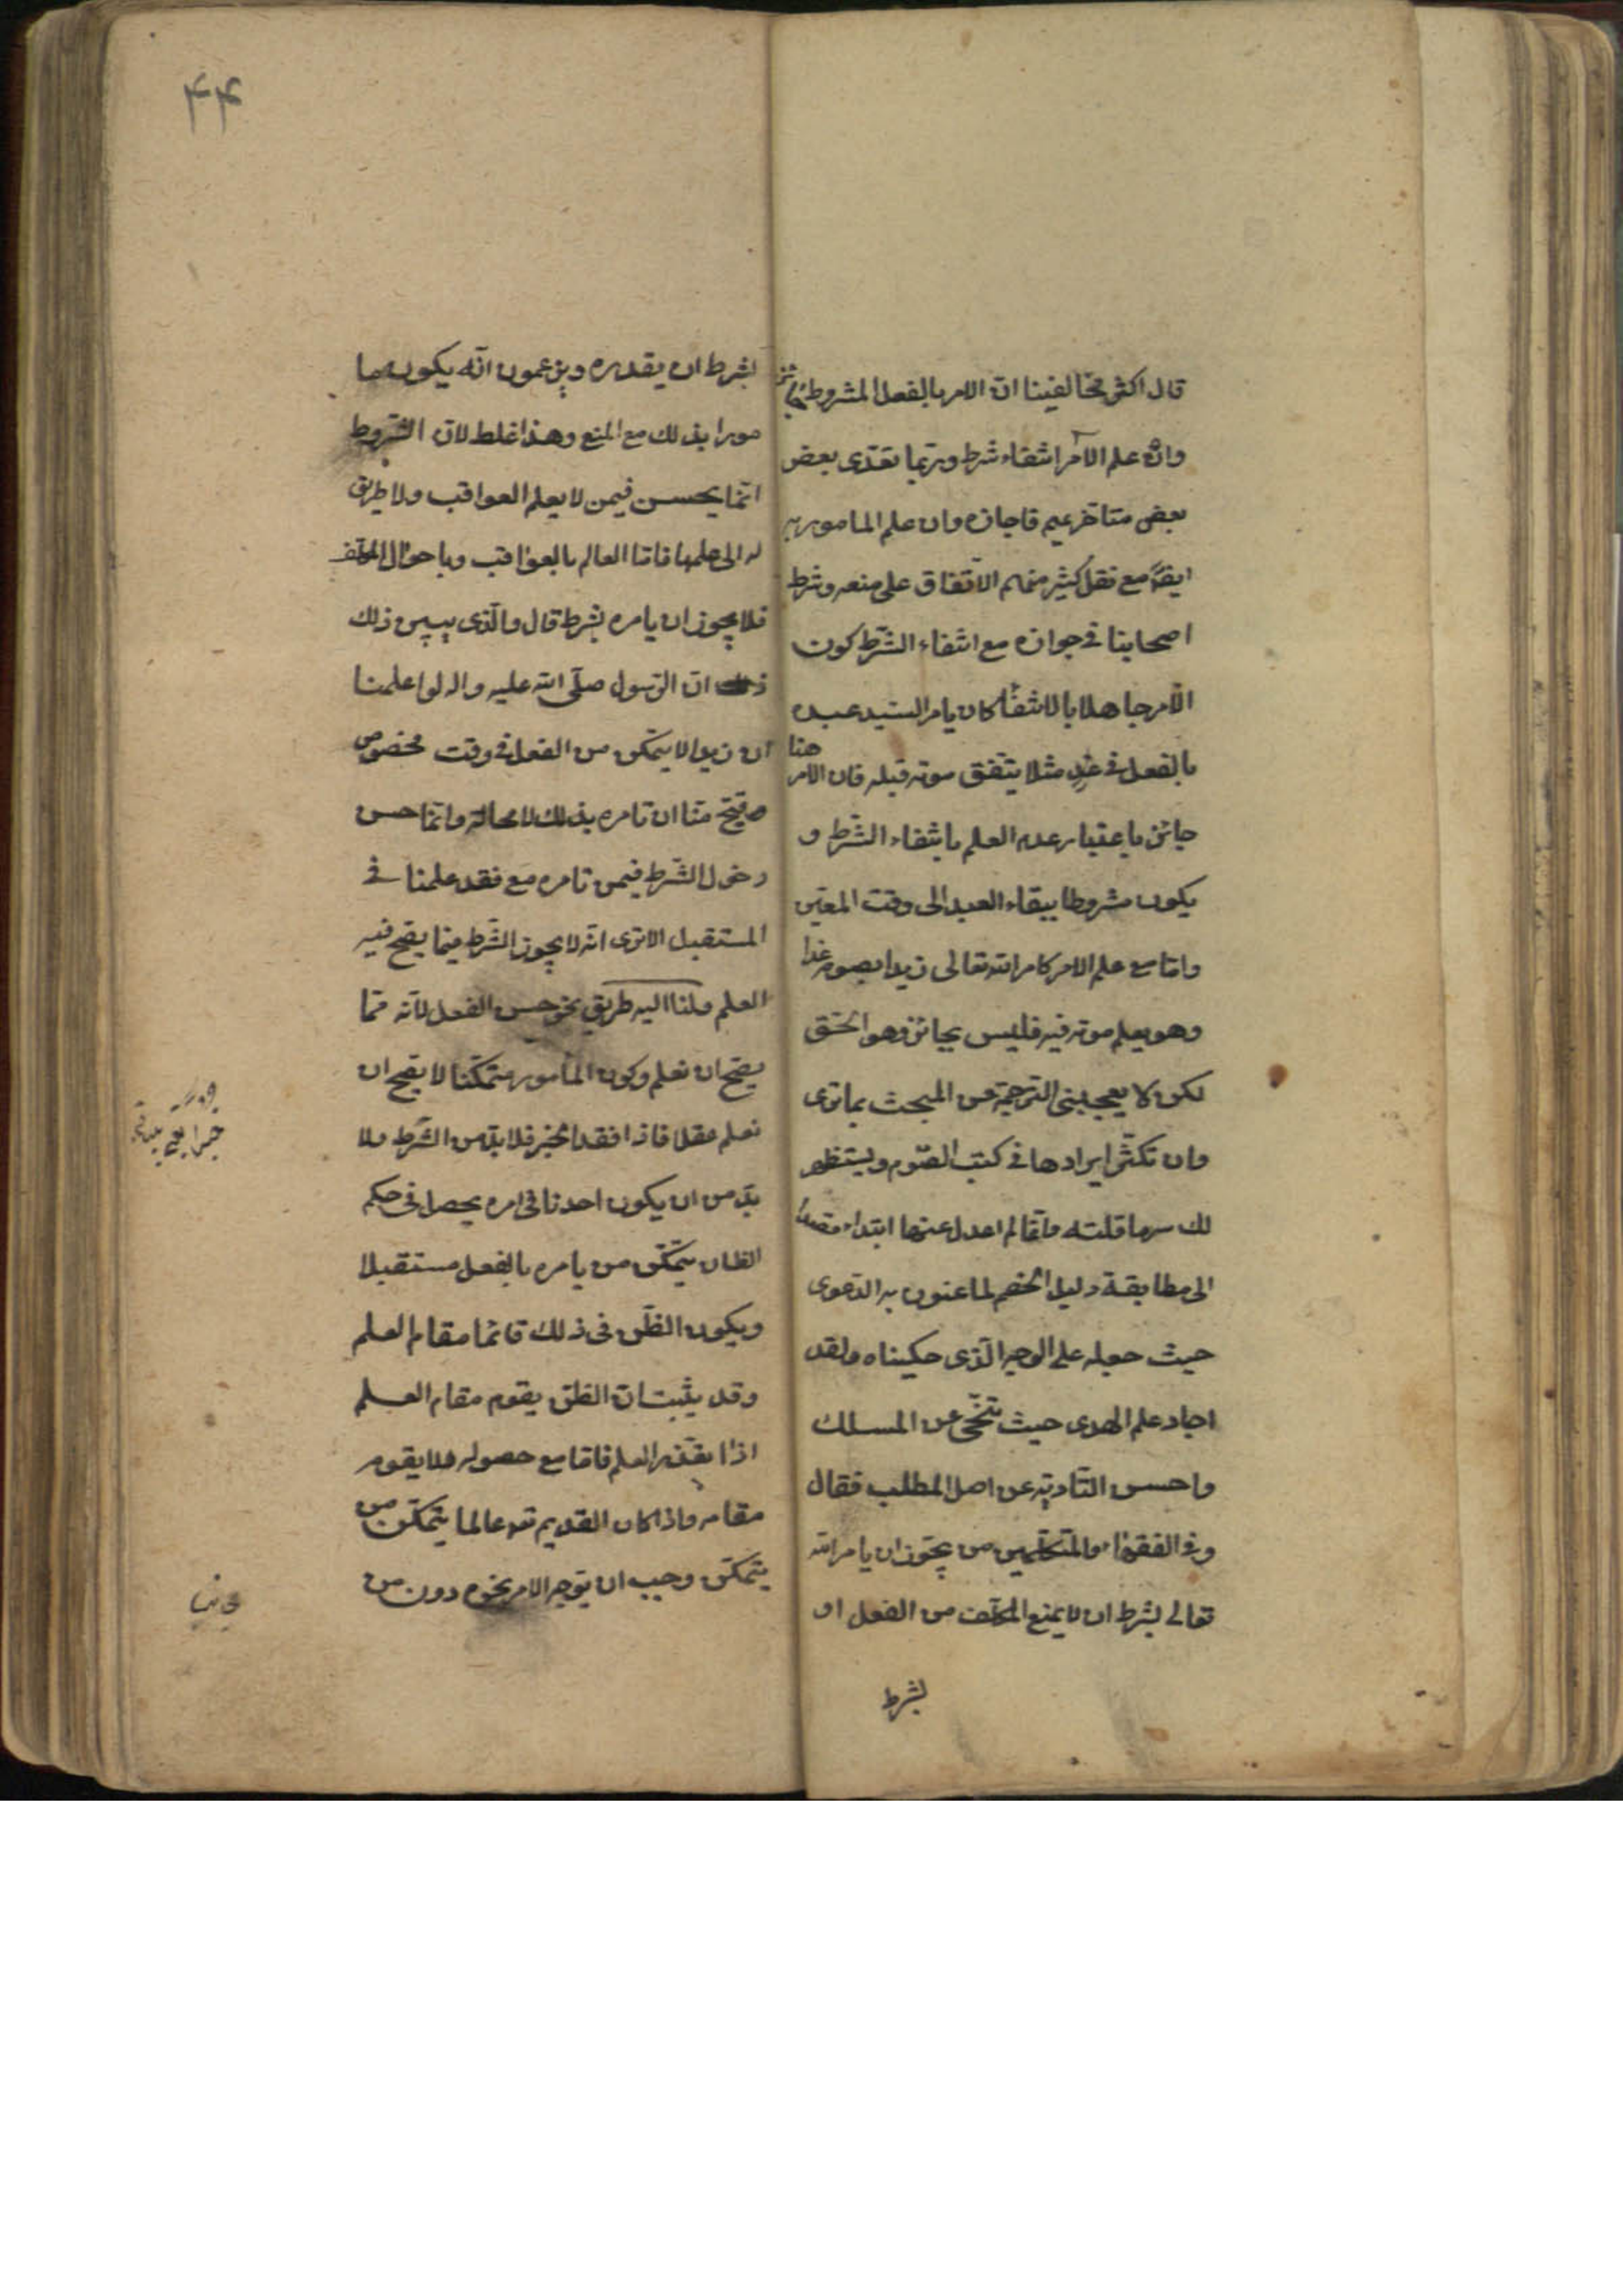 قال اكثر مخالفينا ان الامر بالفعل المشروط جائز
وان علم الآمر انتفاء شرطه وربما تعدى بعض
بعض متاخريهم فاجازه وان علم المامور به
ايضا مع نقل كثير منهم الاتفاق على منعه وشرط
اصحابنا في جوازه مع انتفاء الشرط كون
الآمر جاهلا بالانتفاء كان يامر السيد عبده
بالفعل في غد مثلا يتفق موته قبله فان الامر هنا
جائز باعتبار عدم العلم بانتفاء الشرط و
يكون مشروطا ببقاء العبد الى وقت المعين
واما مع علم الامر كامر الله تعالى زيدا بصوم غدا
وهو يعلم موته فيه فليس بجائز وهو الحق
لكن لا يعجبنى الترجمة عن المبحث بما ترى
وان تكثر ايرادها في كتب القوم وليستظهر
لك سر ما قلته وانما لم اعدل عنها ابتداء قصدا
الى مطابقة دليل الخصم لما عنون به الدعوى
حيث جعله على الوجه الذى حكيناه ولقد
اجاد علم الهدى حيث تنحى عن المسلك
واحسن التادية عن اصل المطلب فقال
وفي الفقهاء والمتكلمين من يجوز ان يامر الله
تعالى بشرط ان لا يمنع المكلف من الفعل او
بشرط
۴۴
بشرط ان يقدره ويزعمون انه يكون ما
مورا بذلك مع المنع وهذا غلط لان الشروط
انما يحسن فيمن لا يعلم العواقب ولا طريق
له الى علمها فاما العالم بالعواقب وباحوال المكلف
فلا يجوز ان يامره بشرط قال والذى يبين ذلك
ذلك ان الرسول صلى الله عليه واله لو اعلمنا
ان زيدا لا يتمكن من الفعل في وقت مخصوص
قبح منا ان نامره بذلك لا محالة وانما حسن
دخول الشرط فيمن نامره مع فقد علمنا في
المستقبل الا ترى انه لا يجوز الشرط فيما يصح فيه
العلم ولنا اليه طريق نحو حسن الفعل لانه مما
يصح ان نعلم وكون المأمور متمكنا لا يصح ان
نعلم عقلا فاذا فقد الخبر فلا بد من الشرط ولا
بد من ان يكون احدنا في امره يحصل في حكم
الظان يتمكن من يامره بالفعل مستقبلا
ويكون الظن في ذلك قائما مقام العلم
وقد يثبت ان الظن يقوم مقام العلم
اذا تعذر العلم فاما مع حصوله فلا يقوم
مقامه واذا كان القديم تعالى عالما يتمكن من
يتمكن وجب ان يوجه الامر نحوه دون من